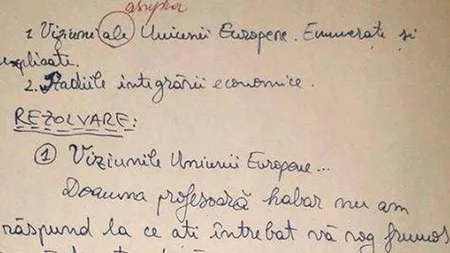 asupra
1. Viziuni ale Uniunii Europene. Enumerați și
explicați.
2. Stadiile integrării economice.
REZOLVARE:
1 Viziunile Uniunii Europene...
Doamna profesoară habar nu am
răspund la ce ați întrebat vă rog frumos